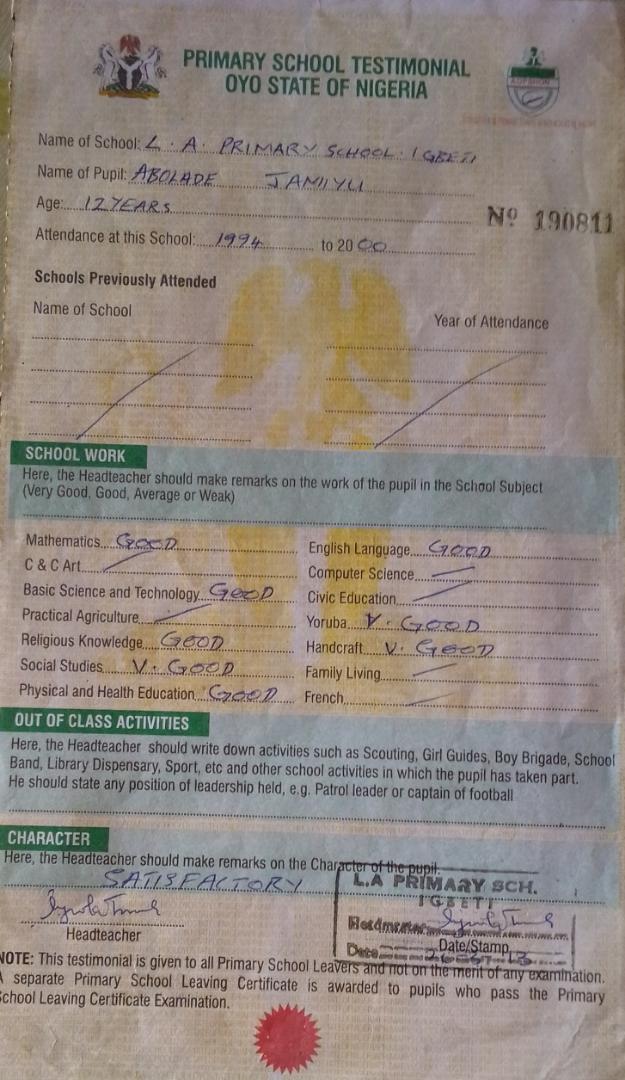 PRIMARY SCHOOL TESTIMONIAL
OYO STATE OF NIGERIA
Name of School: L . A . PRIMARY SCHOOL . IGBETI
Name of Pupil: ABOLADE JAMIYU
Age: 12 YEARS
Nº 190811
Attendance at this School: 1994 to 2000
Schools Previously Attended
Name of School
Year of Attendance
SCHOOL WORK
Here, the Headteacher should make remarks on the work of the pupil in the School Subject
(Very Good, Good, Average or Weak)
Mathematics GOOD
English Language GOOD
C & C Art
Computer Science
Basic Science and Technology GOOD
Civic Education
Practical Agriculture
Yoruba V . GOOD
Religious Knowledge GOOD
Handcraft V . GOOD
Social Studies V . GOOD
Family Living
Physical and Health Education GOOD
French
OUT OF CLASS ACTIVITIES
Here, the Headteacher should write down activities such as Scouting, Girl Guides, Boy Brigade, School
Band, Library Dispensary, Sport, etc and other school activities in which the pupil has taken part.
He should state any position of leadership held, e.g. Patrol leader or captain of football
CHARACTER
Here, the Headteacher should make remarks on the Character of the pupil.
SATISFACTORY
L.A PRIMARY SCH.
IGBETI
Headteacher
Date/Stamp
Date
NOTE: This testimonial is given to all Primary School Leavers and not on the merit of any examination.
A separate Primary School Leaving Certificate is awarded to pupils who pass the Primary
School Leaving Certificate Examination.